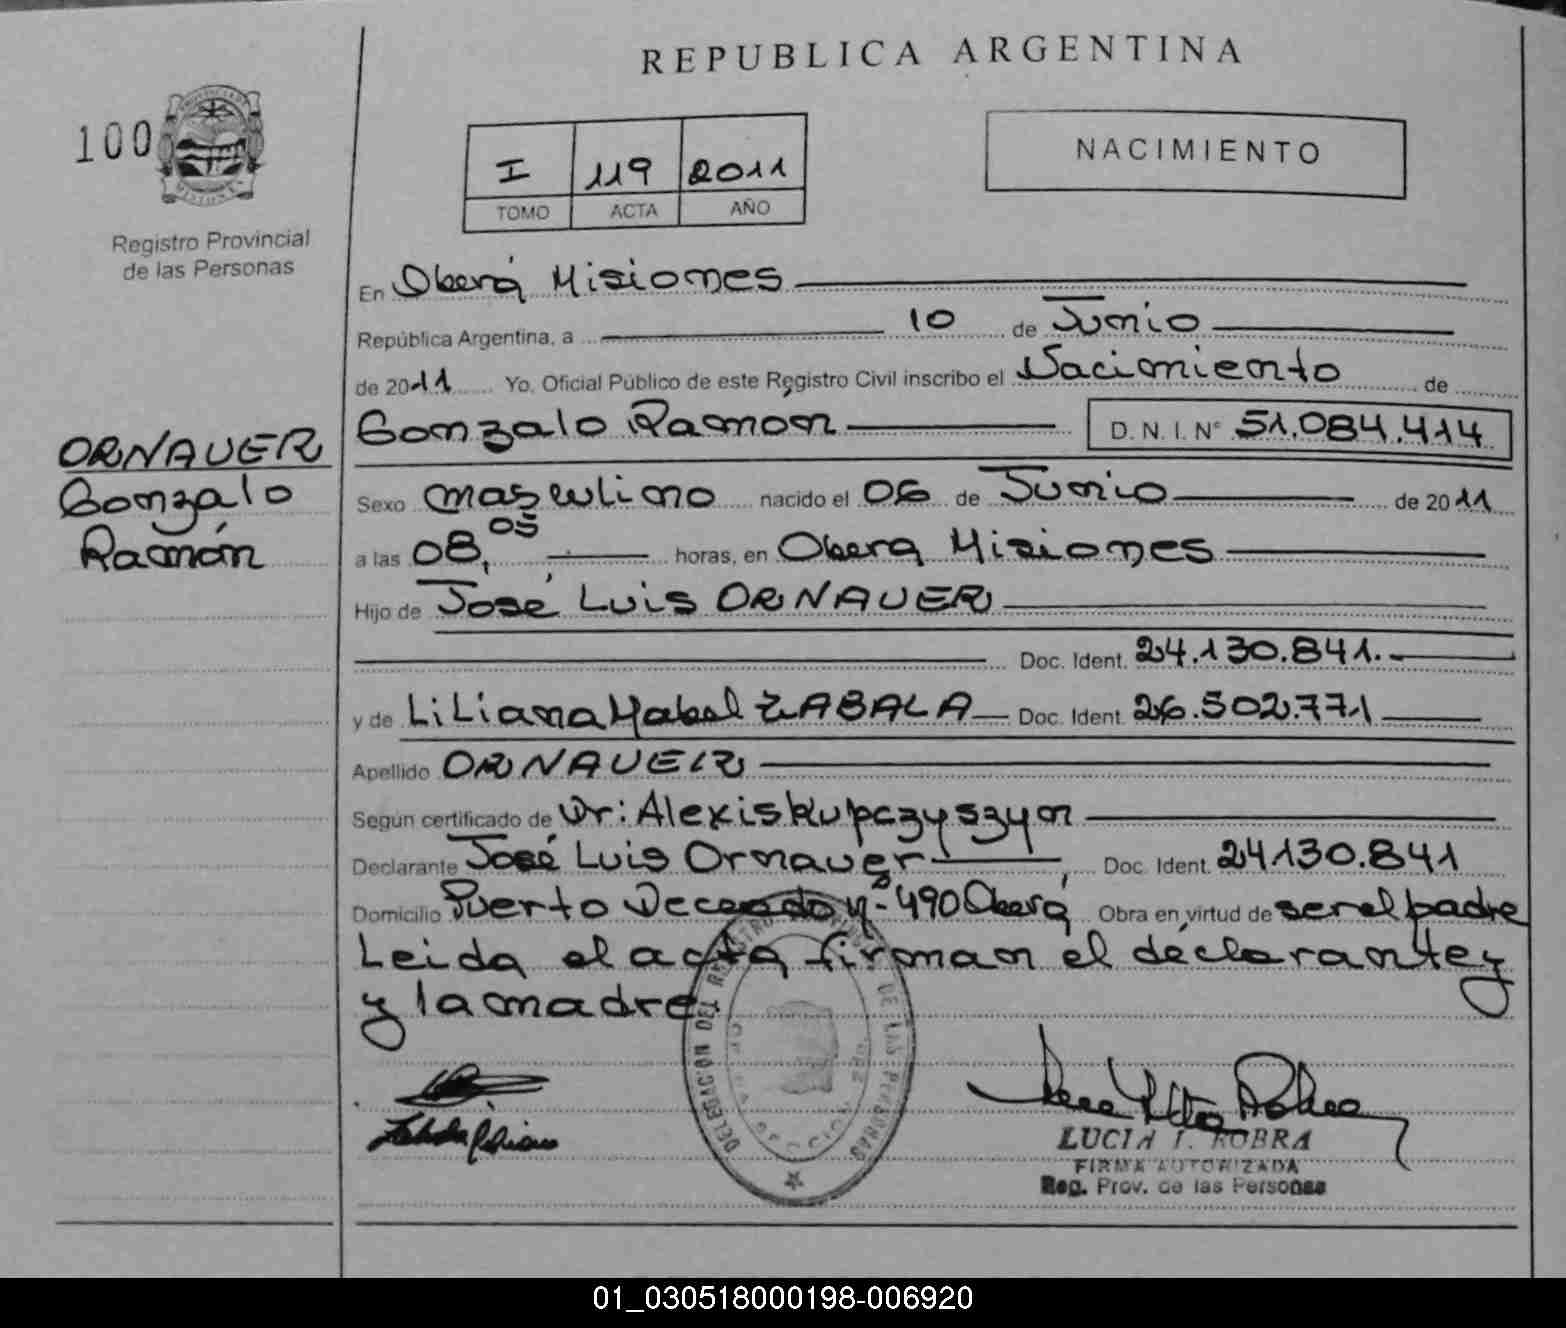 REPUBLICA ARGENTINA
100
I 119 2011
TOMO ACTA AÑO
NACIMIENTO
Registro Provincial
de las Personas
En Oberá Misiones
República Argentina, a 10 de Junio
de 2011 Yo, Oficial Público de este Registro Civil inscribo el Nacimiento de
Gonzalo Ramón D. N. I. N° 51.084.414
ORNAUER
Gonzalo
Ramón
Sexo masculino nacido el 06 de Junio de 2011
a las 08,05 horas, en Oberá Misiones
Hijo de José Luis ORNAUER
Doc. Ident. 24.130.841.-
y de LiLiana Mabel ZABALA Doc. Ident. 26.502.771
Apellido ORNAUER
Según certificado de Dr: Alexis Kupczyszyn
Declarante José Luis Ornauer, Doc. Ident. 24130.841
Domicilio Puerto Deceado Nº 490 Oberá Obra en virtud de ser el padre
Leida el acta firman el declarante y
y la madre.
DELEGACIÓN DEL REGISTRO PROVINCIAL DE LAS PERSONAS
LUCIA I. ROBRA
FIRMA AUTORIZADA
Reg. Prov. de las Personas
01_030518000198-006920